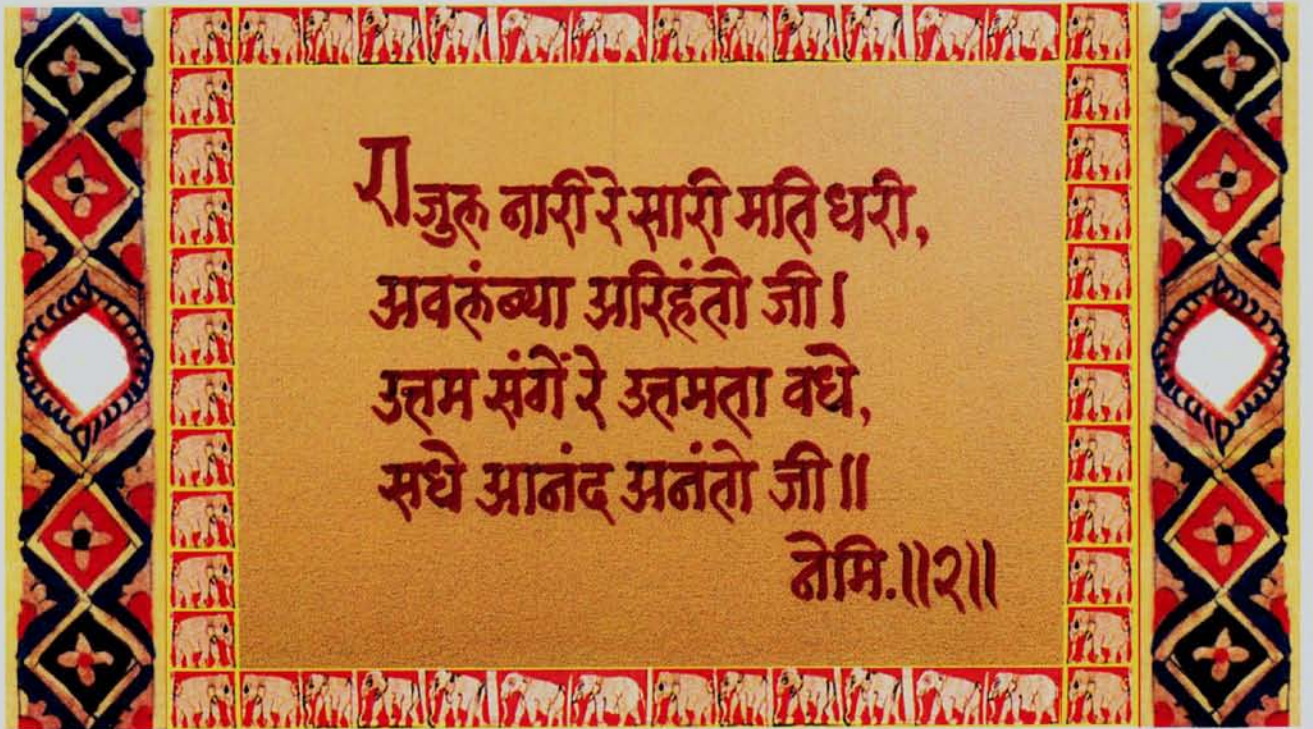 राजुल नारी रे सारी मति धरी,
अवलंब्या अरिहंतो जी।
उत्तम संगें रे उत्तमता वधे,
सधे आनंद अनंतो जी॥
नेमि.॥२॥